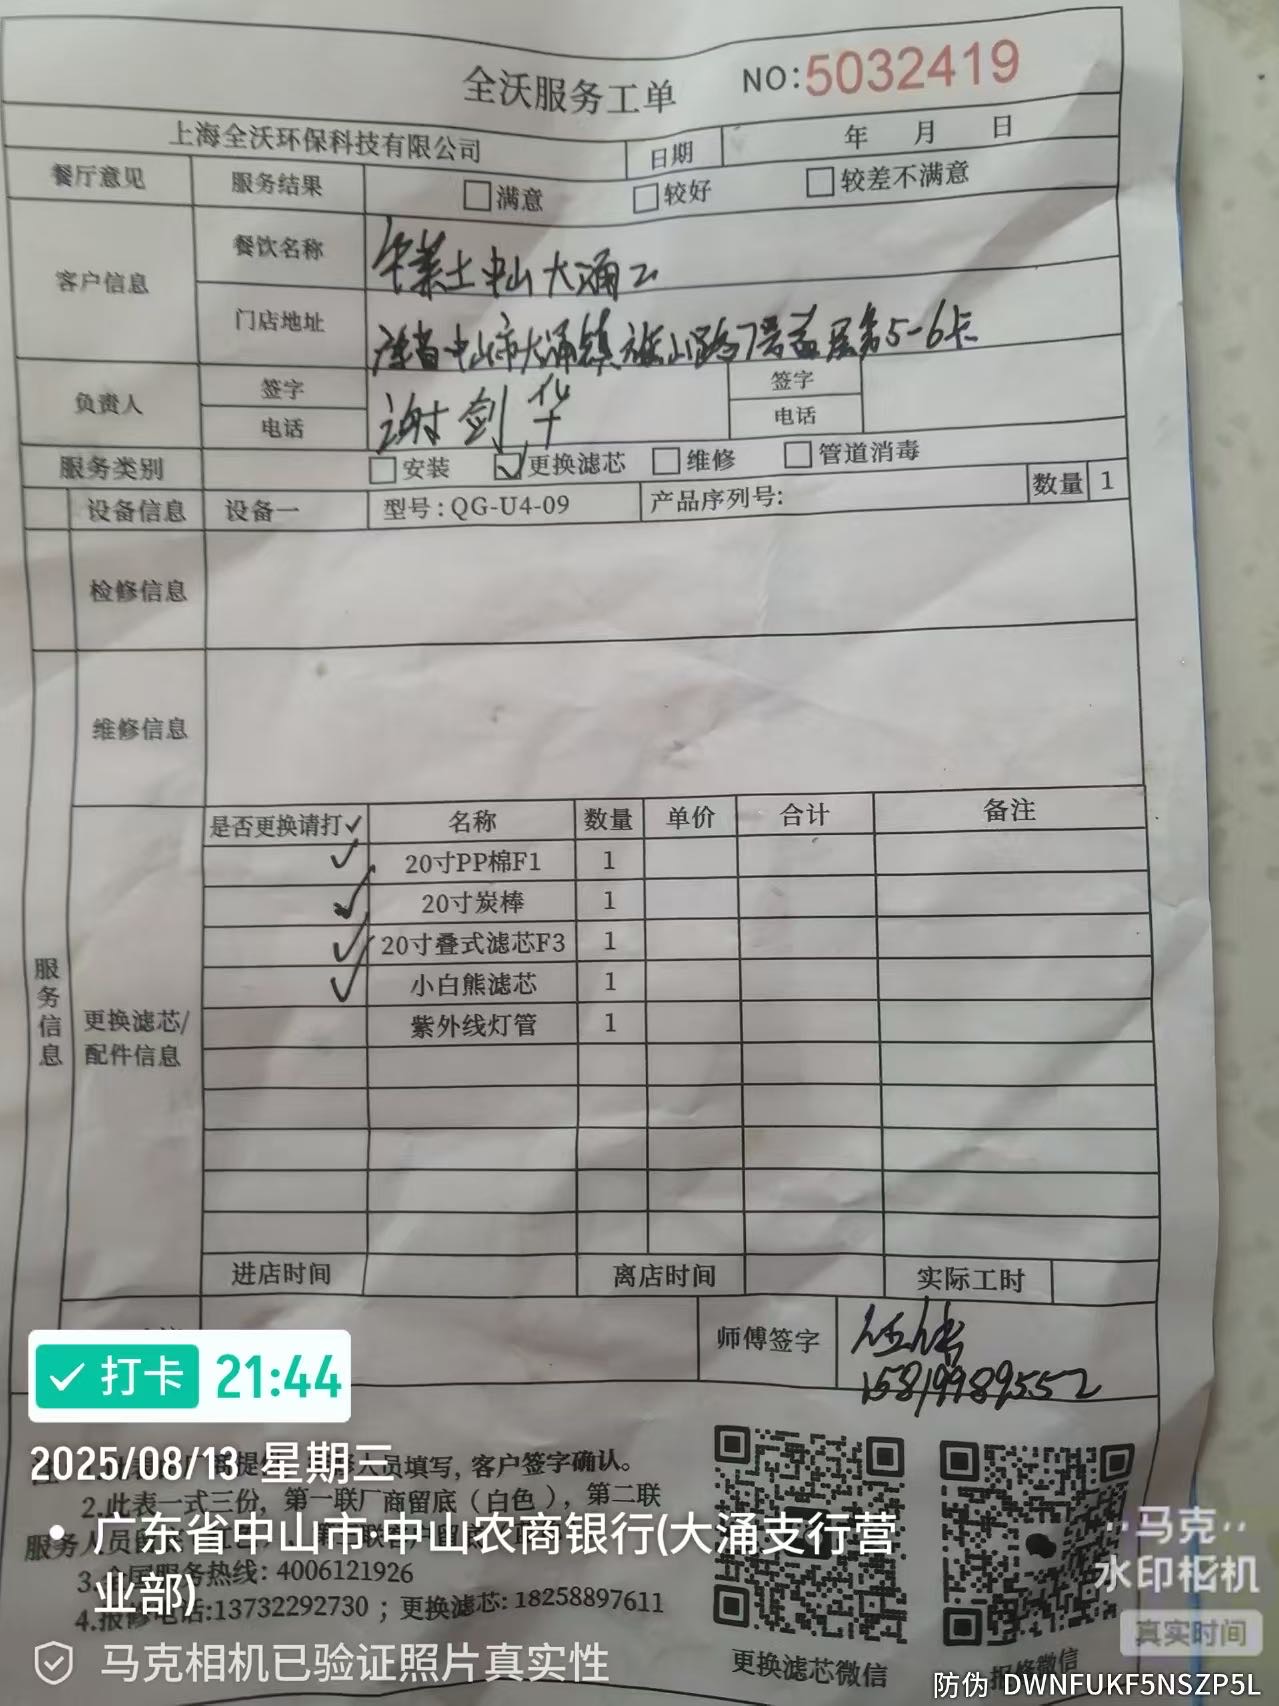 全沃服务工单 NO:5032419
上海全沃环保科技有限公司 日期 年 月 日
餐厅意见 服务结果 满意 较好 较差不满意
客户信息 餐饮名称 华莱士中山大涌二
门店地址 广东省中山市大涌镇旗山路7号首层第5-6卡
负责人 签字 谢剑华 签字
电话 电话
服务类别 安装 ✓更换滤芯 维修 管道消毒
设备信息 设备一 型号:QG-U4-09 产品序列号: 数量 1
检修信息
维修信息
服务信息
更换滤芯/配件信息
是否更换请打✓ 名称 数量 单价 合计 备注
✓ 20寸PP棉F1 1
✓ 20寸炭棒 1
✓ 20寸叠式滤芯F3 1
✓ 小白熊滤芯 1
紫外线灯管 1
进店时间 离店时间 实际工时
师傅签字
15819989552
✓ 打卡 21:44
2025/08/13 星期三
人员填写,客户签字确认。
2.此表一式三份,第一联厂商留底(白色),第二联
服务人员
广东省中山市·中山农商银行(大涌支行营
业部)
3.全国服务热线:4006121926
4.报修电话:13732292730；更换滤芯:18258897611
更换滤芯微信
报修微信
马克相机已验证照片真实性
马克
水印相机
真实时间
防伪 DWNFUKF5NSZP5L